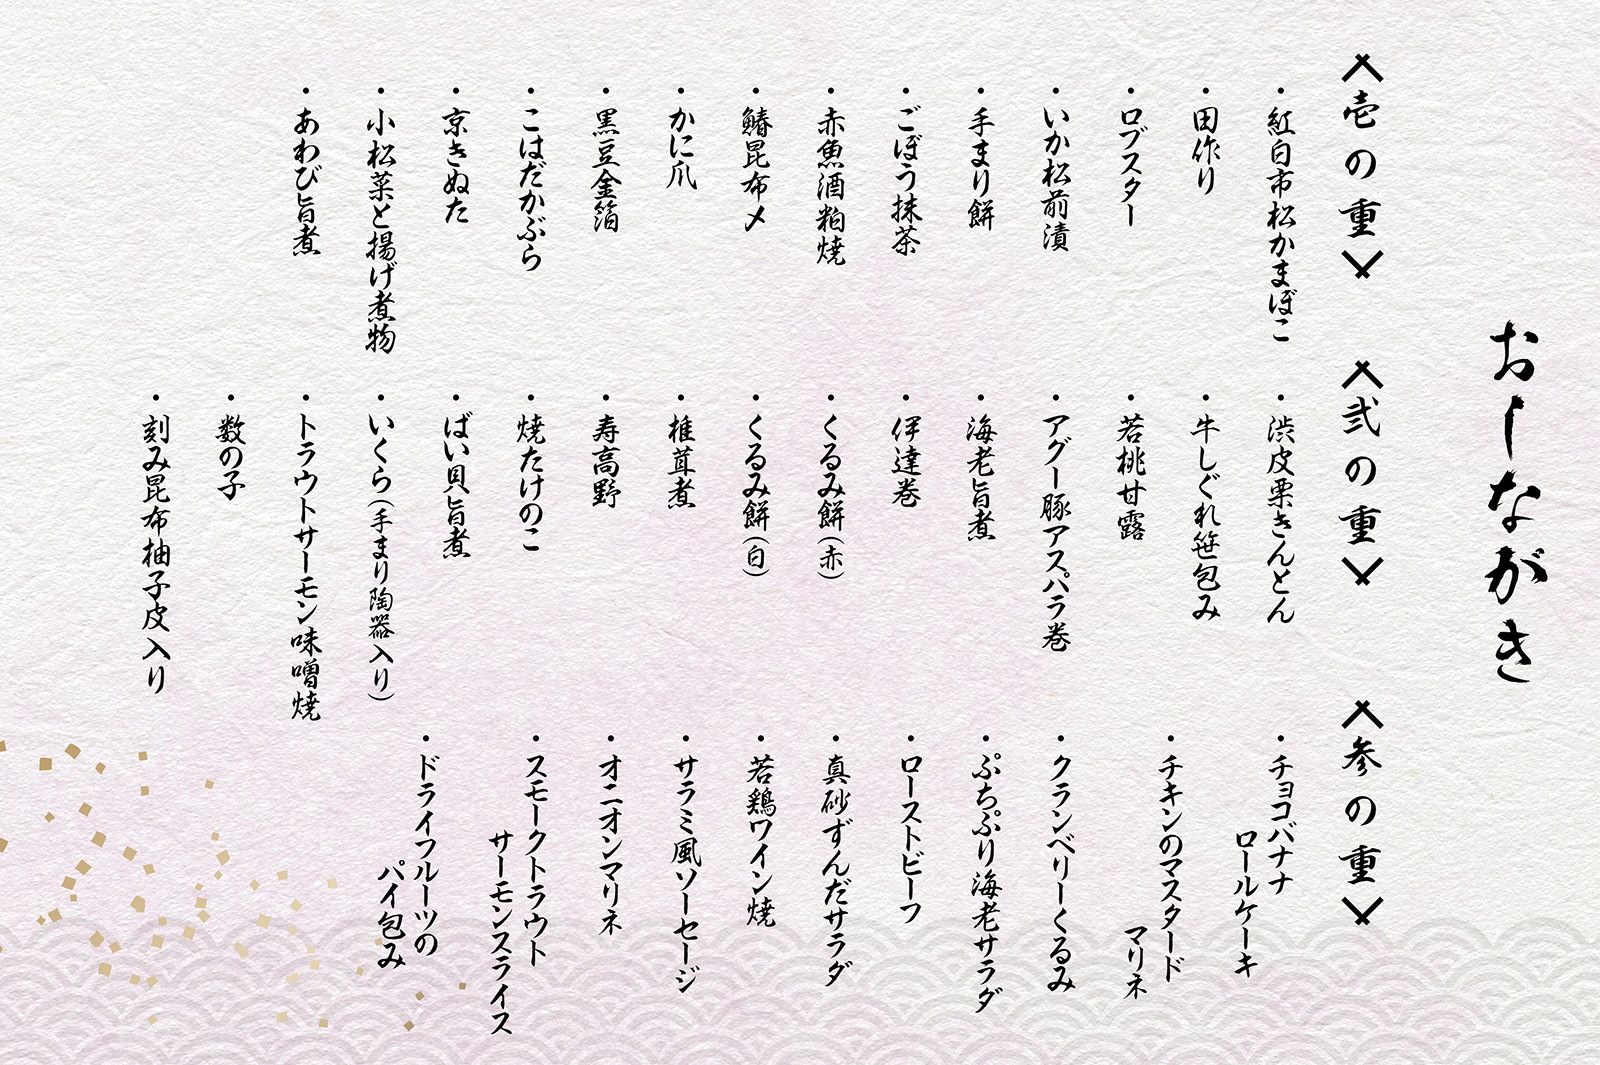 おしながき
壱の重
・紅白市松かまぼこ
・田作り
・ロブスター
・いか松前漬
・手まり餅
・ごぼう抹茶
・赤魚酒粕焼
・鰆昆布〆
・かに爪
・黒豆金箔
・こはだかぶら
・京きぬた
・小松菜と揚げ煮物
・あわび旨煮
弐の重
・渋皮栗きんとん
・牛しぐれ笹包み
・若桃甘露
・アグー豚アスパラ巻
・海老旨煮
・伊達巻
・くるみ餅(赤)
・くるみ餅(白)
・椎茸煮
・寿高野
・焼たけのこ
・ばい貝旨煮
・いくら(手まり陶器入り)
・トラウトサーモン味噌焼
・数の子
・刻み昆布柚子皮入り
参の重
・チョコバナナ
ロールケーキ
・チキンのマスタード
マリネ
・クランベリーくるみ
・ぷちぷり海老サラダ
・ローストビーフ
・真砂ずんだサラダ
・若鶏ワイン焼
・サラミ風ソーセージ
・オニオンマリネ
・スモークトラウト
サーモンスライス
・ドライフルーツの
パイ包み